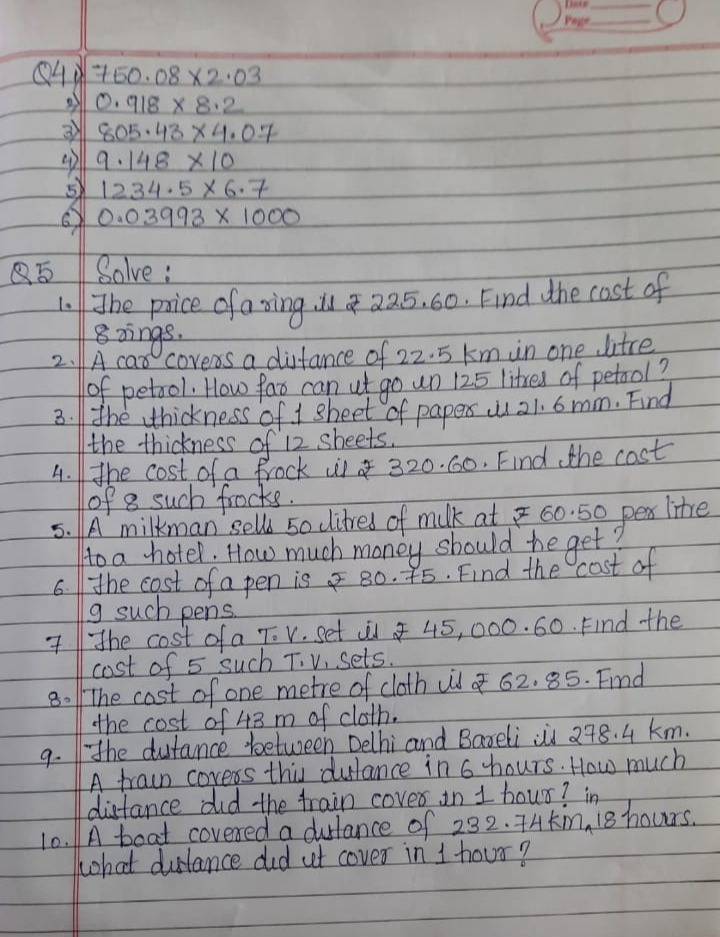 Date
Page
Q4 1) 750.08 × 2.03
2) 0.918 × 8.2
3) 805.43 × 4.07
4) 9.148 × 10
5) 1234.5 × 6.7
6) 0.03993 × 1000
Q5 Solve :
1. The price of a ring is ₹ 225.60. Find the cost of
8 rings.
2. A car covers a distance of 22.5 km in one litre
of petrol. How far can it go in 125 litres of petrol?
3. The thickness of 1 sheet of paper is 21.6 mm. Find
the thickness of 12 sheets.
4. The cost of a frock is ₹ 320.60. Find the cost
of 8 such frocks.
5. A milkman sells 50 litres of milk at ₹ 60.50 per litre
to a hotel. How much money should he get?
6. The cost of a pen is ₹ 80.75. Find the cost of
9 such pens
7 The cost of a T.V. set is ₹ 45,000.60. Find the
cost of 5 such T.V. sets.
8. The cost of one metre of cloth is ₹ 62.85. Find
the cost of 43 m of cloth.
9. The distance between Delhi and Bareli is 278.4 km.
A train covers this distance in 6 hours. How much
distance did the train cover in 1 hour?
10. A boat covered a distance of 232.74 km in 18 hours.
what distance did it cover in 1 hour?